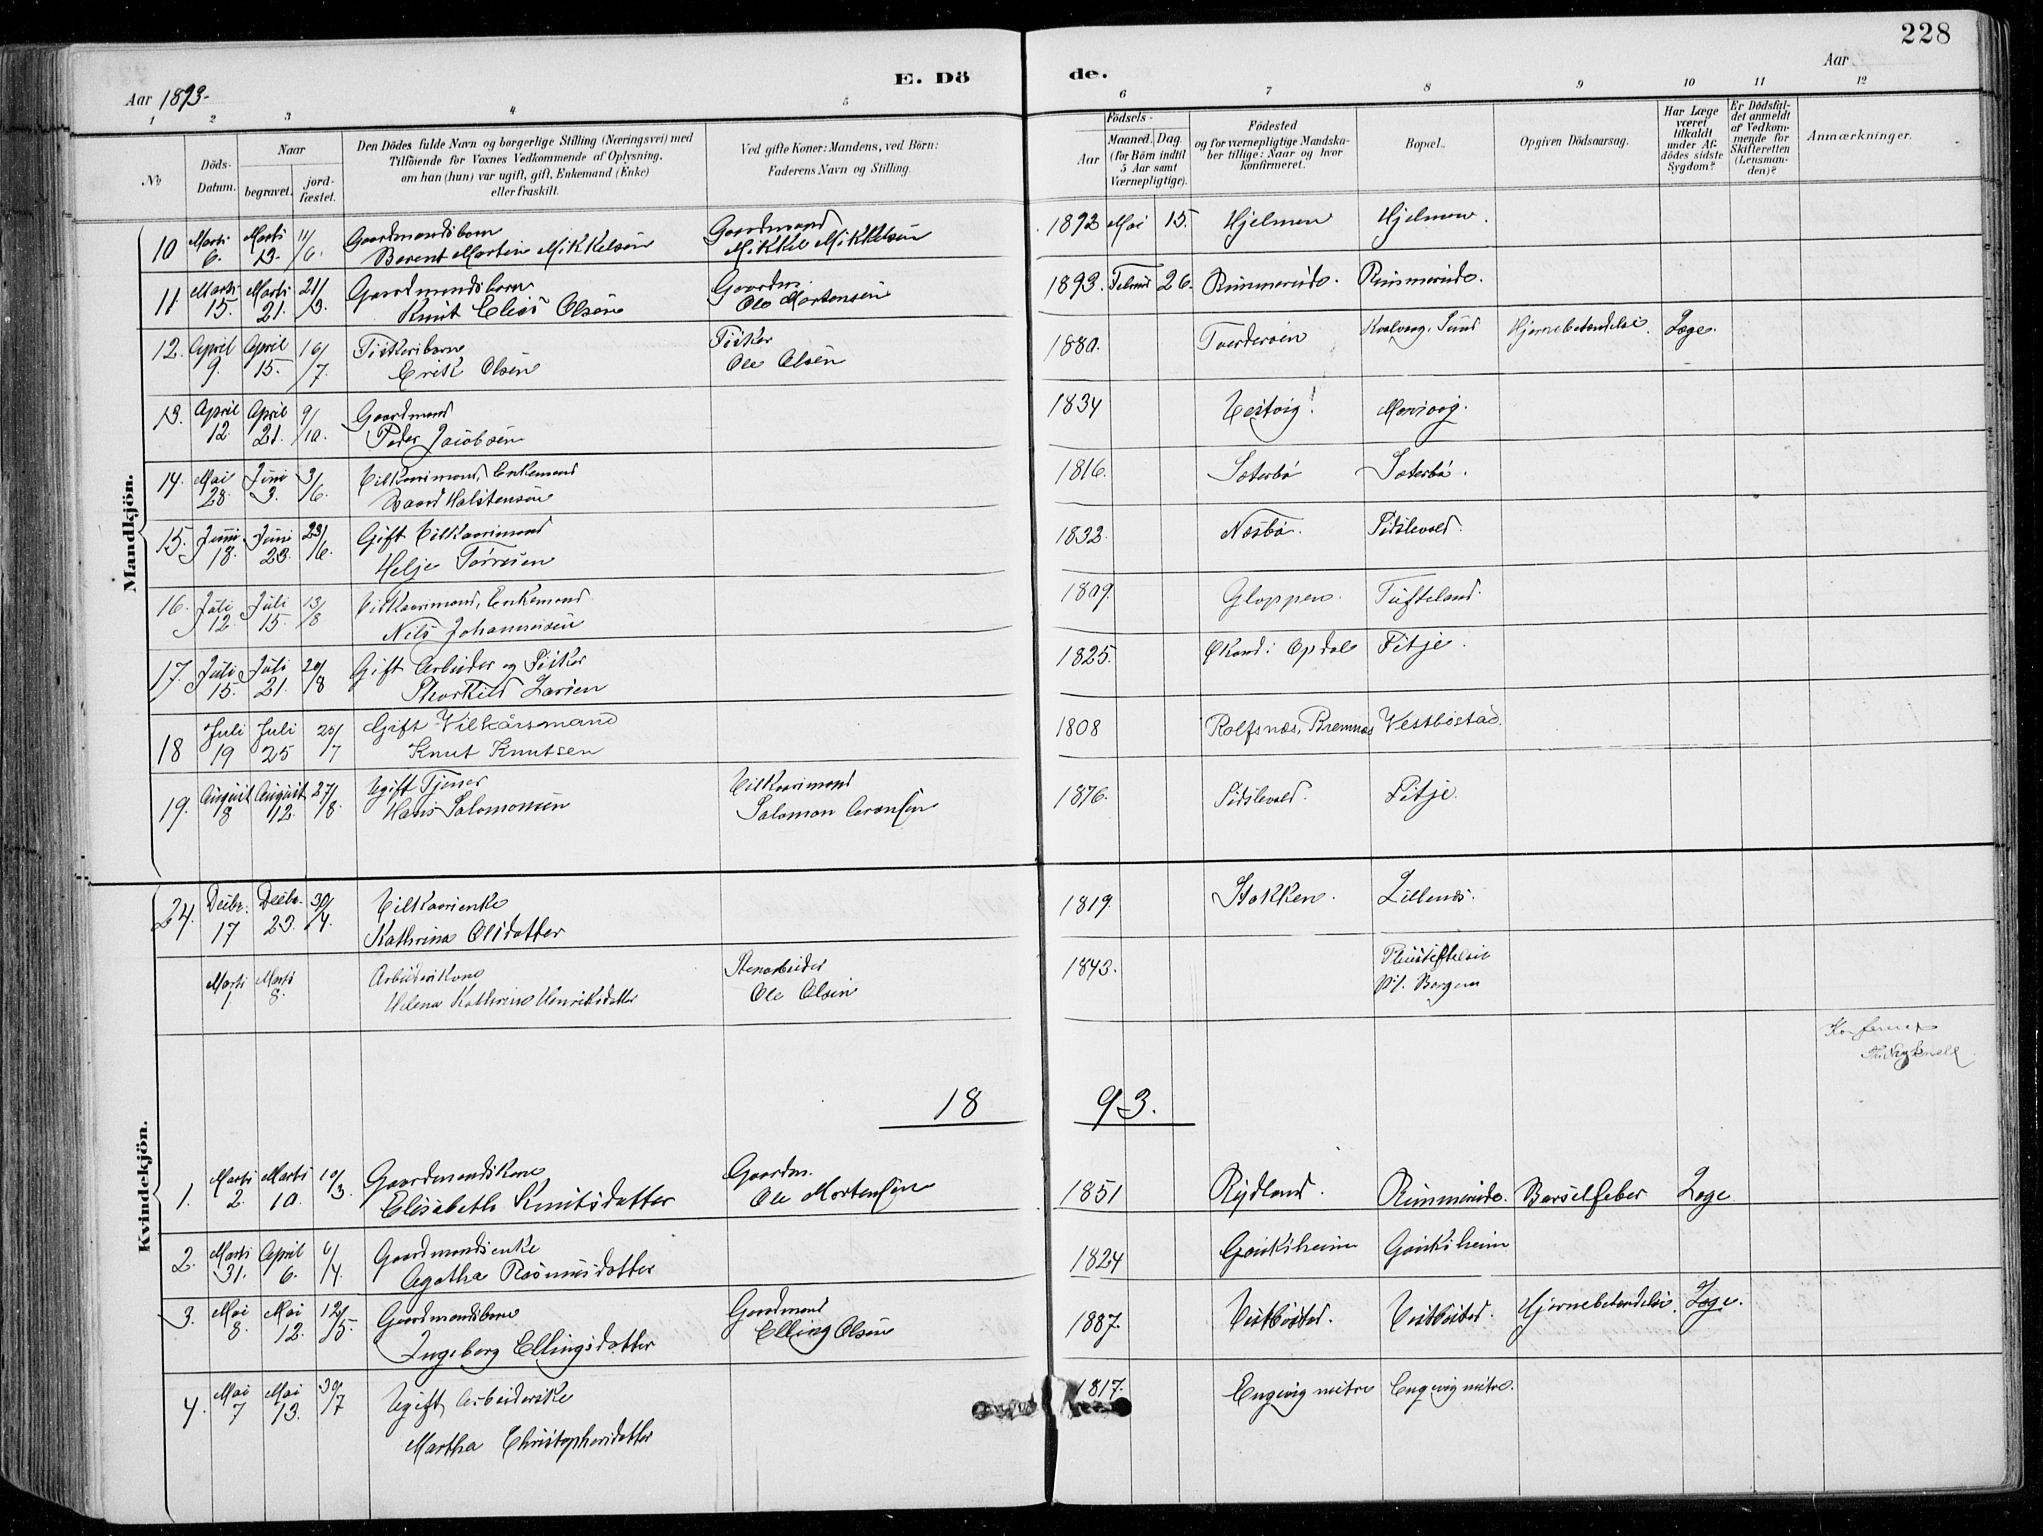 228
E. Dö de.
Aar 1893.
Aar
1 2 3 4 5 6 7 8 9 10 11 12
No
Döds-Datum.
Naar
begravet.
jord-fæstet.
Den Dödes fulde Navn og borgerlige Stilling (Næringsvei) med
Tilföiende for Voxnes Vedkommende af Oplysning,
om han (hun) var ugift, gift, Enkemand (Enke)
eller fraskilt.
Ved gifte Koner: Mandens, ved Börn:
Faderens Navn og Stilling.
Födsels-
Aar
Maaned. Dag.
(for Börn indtil
5 Aar samt
Værnepligtige).
Födested
og for værnepligtige Mandska-
ber tillige: Naar og hvor
konfirmeret.
Bopæl.
Opgiven Dödsaarsag.
Har Læge
været
tilkaldt
under Af-
dödes sidste
Sygdom?
Er Dödsfal-
det anmeldt
af Vedkom-
mende for
Skifteretten
(Lensman-
den)?
Anmærkninger.
Mandkjön.
10 Marts 6. Marts 13. 11/6. Gaardmandsbarn Berent Martin Mikkelsen Gaardmand Mikkel Mikkelsen 1892 Mai 15. Hjelmen Hjelmen.
11. Marts 15. Marts 21. 21/3. Gaardmandsbarn Knut Elias Olsen Gaardm. Ole Mortensen 1893. Februar 26. Rimmereide. Rimmereide.
12. April 9. April 15. 16/7. Fiskerbarn Erik Olsen Fisker Ole Olsen 1880. Kvalvaag, Sund Hjernebetændelse. Læge.
13. April 12 April 21. 9/10. Gaardmand Peder Jacobsen 1834 Vestvig
14. Mai 28. Juni 3. 3/6. Vilkaarsmand, Enkemand Baard Halstensen 1816. Sæterbö Sæterbö.
15. Juni 18. Juni 23. 23/6. Gift Vilkaarsmand Helje Torresen 1832. Næsbö. Sidslevold.
16. Juli 12. Juli 15. 13/8 Vilkaarsmand, Enkemand Nils Johannesen 1809. Gloppen. Tufteland.
17. Juli 15. Juli 21. 20/8 Gift Arbeider og Fisker Thorkild Larsen 1825. Økland i Opdal Fitje.
18 Juli 19 Juli 25 25/7 Gift Vilkårsmand Knut Knutsen 1808 Rolfsnæs, Bremnæs Vestböstad.
19. August 8 August 12. 27/8. Ugift Tjener Hans Salomonsen Vilkaarsmand Salomon Aronsen 1876. Sidslevold. Fitje.
Kvindekjön.
24. Decbr. 17 Decbr. 23. 30/4. Vilkaarsenke Kathrina Olsdatter 1819. Stokken. Lillenæs.
Marts 1 Marts 8. Arbeiderkone Helena Kathrine Henriksdatter Stenarbeider Ole Olsen 1843. Pleiestiftelsen No 1. Bergen
Konfereret
18 93.
1. Marts 2. Marts 10. 10/3. Gaardmandskone Elisabeth Knutsdatter Gaardm. Ole Mortensen 1851 Rydland. Rimmereide. Barselfeber Læge
2. Marts 31. April 6. 6/4. Gaardmandsenke Agatha Rasmusdatter 1824 Gauksheim Gauksheim
3. Mai 8. Mai 12. 12/5. Gaardmandsbarn Ingeborg Ellingsdatter Gaardmand Elling Olsen 1887. Vestböstad. Vestböstad. Hjernebetændelse. Læge.
4. Mai 7 Mai 13. 30/7 Ugift Arbeiderske Martha Christophersdatter 1817. Engevig nitre Engevig nitre.